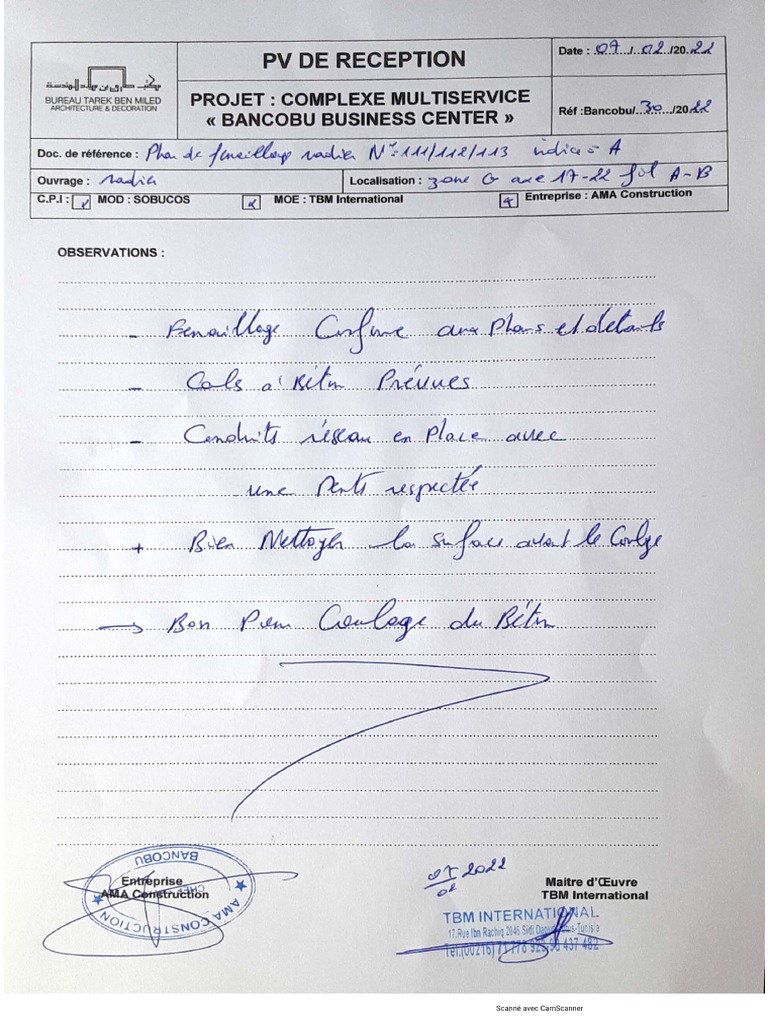 PV DE RECEPTION
Date : 07/02/2022
BUREAU TAREK BEN MILED
ARCHITECTURE & DECORATION
PROJET : COMPLEXE MULTISERVICE
« BANCOBU BUSINESS CENTER »
Réf :Bancobu/30/2022
Doc. de référence : Plan de ferraillage radier N°:111/112/113 indice A
Ouvrage : radier
Localisation : zone G axe 17-22 A-B
C.P.I : MOD : SOBUCOS MOE : TBM International Entreprise : AMA Construction
OBSERVATIONS :
- Ferraillage Conforme aux Plans et détails
- Cals à Béton Prévues
- Conduits réseau en Place avec
une Pente respectée
+ Bien Nettoyer la surface avant le Coulage
→ Bon Pour Coulage du Béton
BANCOBU
Entreprise
AMA Construction
AMA CONSTRUCTION
07/02 2022
Maitre d'Œuvre
TBM International
TBM INTERNATIONAL
17,Rue Ibn Rachiq 2045 Sidi
Tél.(00216) 71 778 437 482
Scanné avec CamScanner